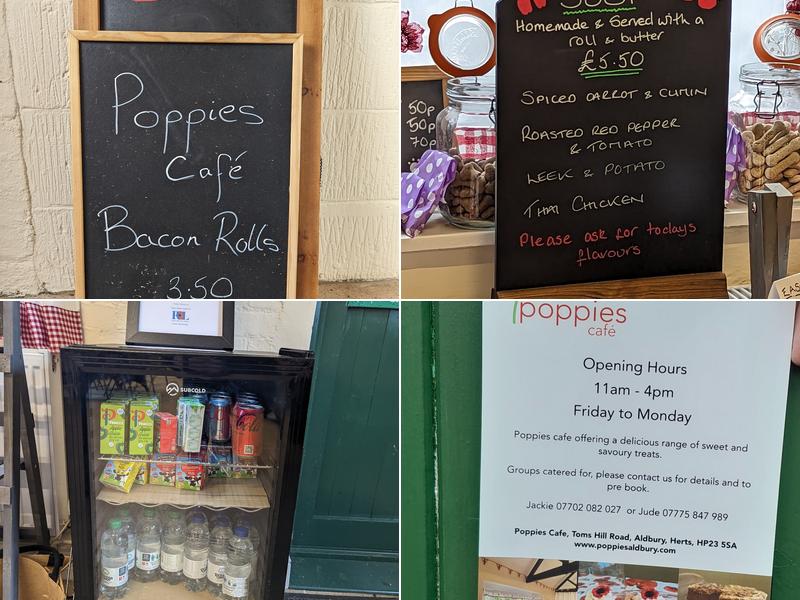 Poppies
Café
Bacon Rolls
3.50
50p
50p
70p
SOUP
Homemade & Served with a
roll & butter
£5.50
SPICED CARROT & CUMIN
ROASTED RED PEPPER
& TOMATO
LEEK & POTATO
THAI CHICKEN
Please ask for todays
flavours
SUBCOLD
poppies
café
Opening Hours
11am - 4pm
Friday to Monday
Poppies cafe offering a delicious range of sweet and
savoury treats.
Groups catered for, please contact us for details and to
pre book.
Jackie 07702 082 027 or Jude 07775 847 989
Poppies Cafe, Toms Hill Road, Aldbury, Herts, HP23 5SA
www.poppiesaldbury.com